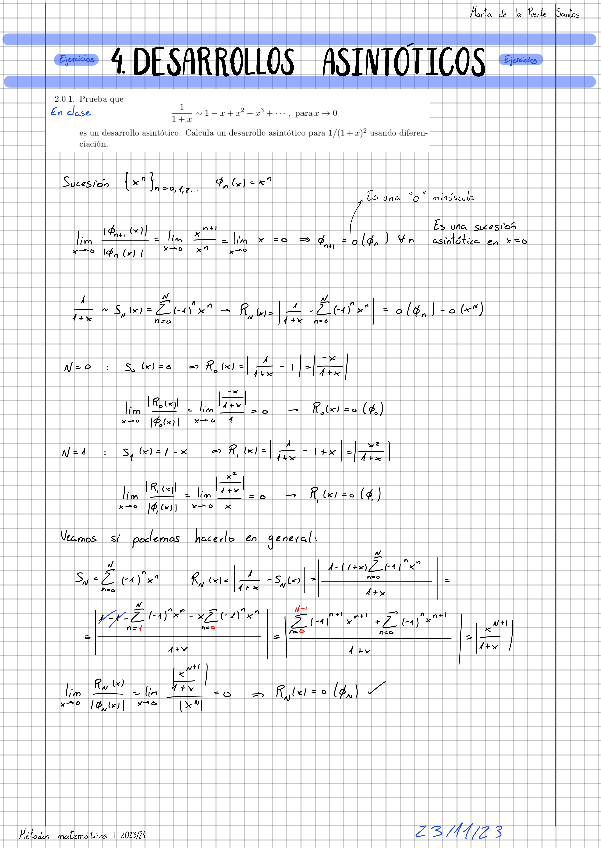 Marta de la Puente Santos
Ejercicios 4. DESARROLLOS ASINTÓTICOS Ejercicios
2.0.1. Prueba que
En clase
1/(1+x) ∼ 1 − x + x² − x³ + ⋯ , para x → 0
es un desarrollo asintótico. Calcula un desarrollo asintótico para 1/(1 + x)² usando diferen-
ciación.
Sucesión {xⁿ}ₙ₌₀,₁,₂... ϕₙ(x) = xⁿ
Es una "o" minúscula
lim_{x→0} |ϕₙ₊₁(x)|/|ϕₙ(x)| = lim_{x→0} xⁿ⁺¹/xⁿ = lim_{x→0} x = 0 ⇒ ϕₙ₊₁ = o(ϕₙ) ∀n Es una sucesión
asintótica en x=0
1/(1+x) ∼ S_N(x) = Σ_{n=0}^{N} (-1)ⁿ xⁿ → R_N(x) = |1/(1+x) - Σ_{n=0}^{N} (-1)ⁿ xⁿ| = o(ϕₙ) - o(x^N)
N=0 : S₀(x) = 0 ⇒ R₀(x) = |1/(1+x) - 1| = |-x/(1+x)|
lim_{x→0} |R₀(x)|/|ϕ₀(x)| = lim_{x→0} |-x/(1+x)|/1 = 0 → R₀(x) = o(ϕ₀)
N=1 : S₁(x) = 1-x ⇒ R₁(x) = |1/(1+x) - 1+x| = |x²/(1+x)|
lim_{x→0} |R₁(x)|/|ϕ₁(x)| = lim_{x→0} |x²/(1+x)|/x = 0 → R₁(x) = o(ϕ₁)
Veamos si podemos hacerlo en general:
S_N = Σ_{n=0}^{N} (-1)ⁿ xⁿ R_N(x) = |1/(1+x) - S_N(x)| = |(1-(1+x) Σ_{n=0}^{N} (-1)ⁿ xⁿ)/(1+x)| =
= |(1-1-Σ_{n=1}^{N} (-1)ⁿ xⁿ - x Σ_{n=0} (-1)ⁿ xⁿ)/(1+x)| = |(Σ_{n=0}^{N-1} (-1)ⁿ⁺¹ xⁿ⁺¹ + Σ_{n=0} (-1)ⁿ xⁿ⁺¹)/(1+x)| = |x^{N+1}/(1+x)|
lim_{x→0} R_N(x)/|ϕ_N(x)| = lim_{x→0} |x^{N+1}/(1+x)|/|x^N| = 0 ⇒ R_N(x) = o(ϕ_N) ✓
Métodos matemáticos I 2023/24
23/11/23